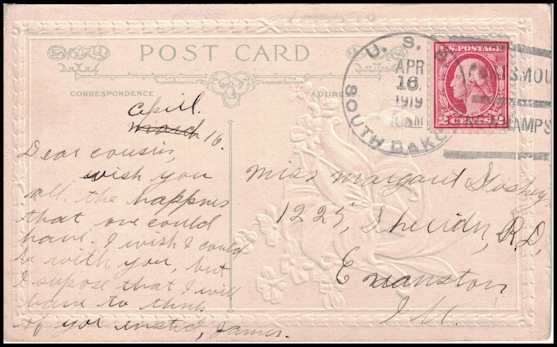 POST CARD
CORRESPONDENCE
ADDRE
U. S. S.
APR
16
1919
AM
SOUTH DAKO
U.S. POSTAGE
2 CENTS 2
April.
march 16.
Dear cousin,
wish you
all the happnes
that one could
have. I wish I could
be with you, but
I supose that I will
have to think
of you insted, James.
Miss Margaret
1225, Sheridn, RD,
Evanston
Ill.